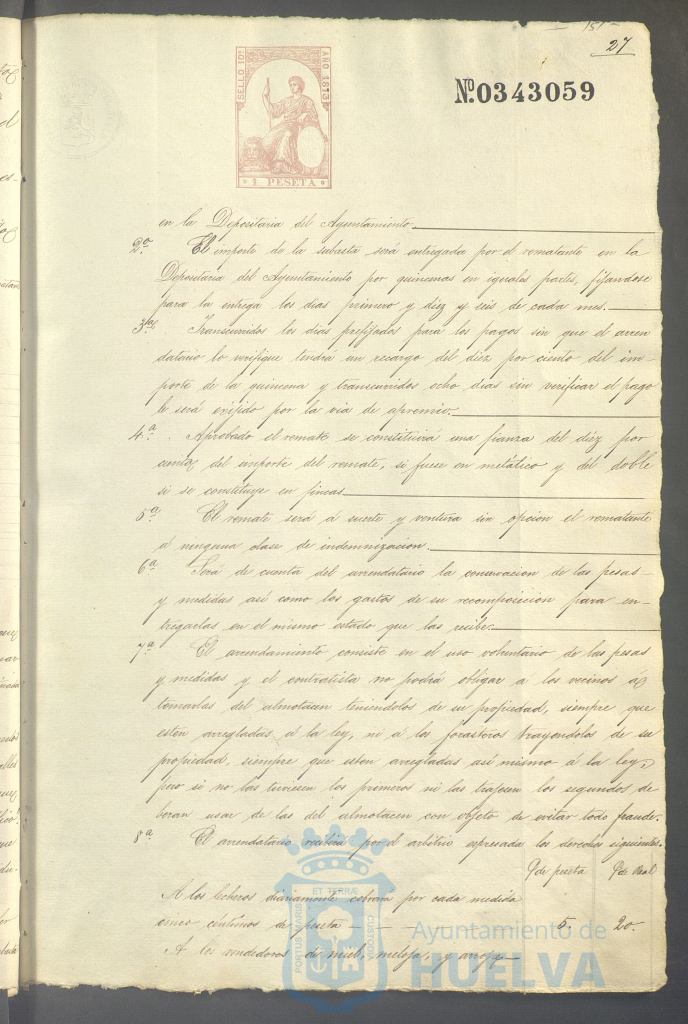 27
SELLO 10º AÑO 1873
1 PESETA
Nº 0343059
en la Depositaria del Ayuntamiento.
2ª El importe de la subasta será entregada por el rematante en la
Depositaria del Ayuntamiento por quincenas en iguales partes, fijandose
para la entrega los dias primero y diez y seis de cada mes.
3ª Transcurridos los dias prefijados para los pagos sin que el arren
datario lo verifique tendrá un recargo del diez por ciento del im-
porte de la quincena y transcurridos ocho dias sin verificar el pago
le será exijido por la via de apremio.
4ª Aprobado el remate se constituirá una fianza del diez por
ciento del importe del remate, si fuese en metálico y del doble
si se constituye en fincas
5ª El remate será á suerte y ventura sin opcion el rematante
á ninguna clase de indemnizacion.
6ª Será de cuenta del arrendatario la conservacion de las pesas
y medidas así como los gastos de su recomposicion para en-
tregarlas en el mismo estado que las recibe.
7ª El arrendamiento consiste en el uso voluntario de las pesas
y medidas y el contratista no podrá obligar a los vecinos á
tomarlas del almotacen teniendolos de su propiedad, siempre que
esten arregladas á la ley, ni á los forasteros trayendolos de su
propiedad, siempre que esten arregladas así mismo á la ley,
pero si no las tuviesen los primeros ni las trajesen los segundos de
beran usar de las del almotacen con objeto de evitar todo fraude.
8ª El arrendatario recibirá por el arbitrio espresado los derechos siguientes.
de peseta de Real
A los lecheros diariamente cobrara por cada medida
cinco centimos de peseta 5. 20.
A los vendedores de miel, meloja, y arrope
PORTUS MARIS ET TERRÆ CUSTODIA
Ayuntamiento de
HUELVA